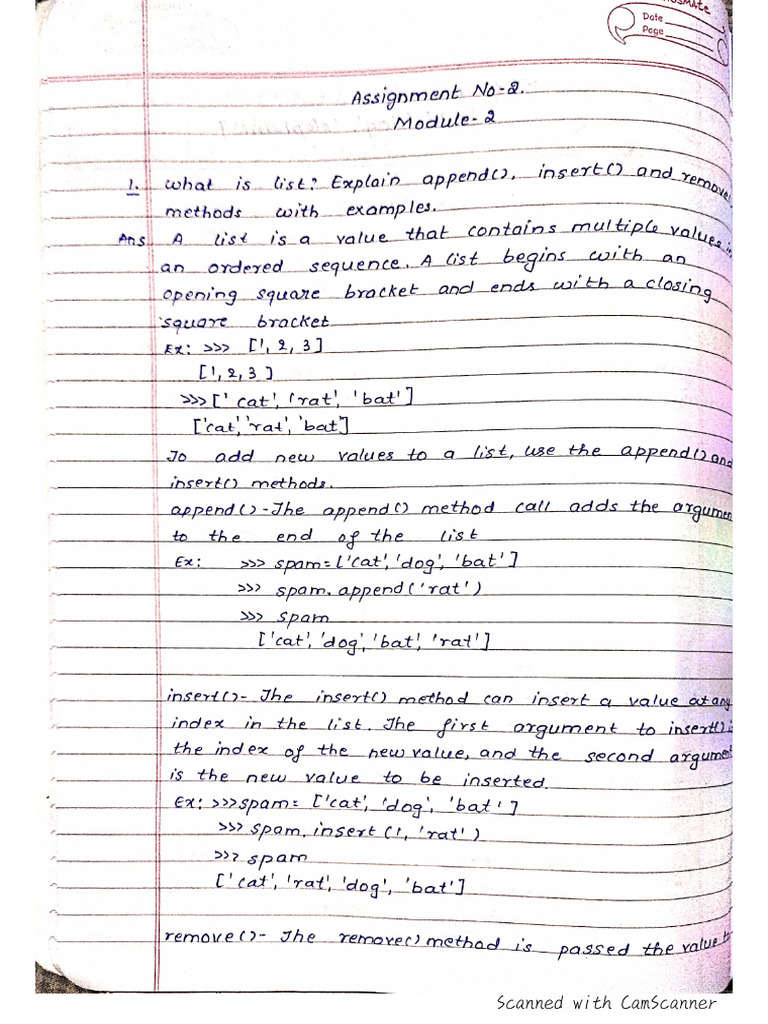 Date
Page
Assignment No-2.
Module-2
1. What is list? Explain append(), insert() and remove()
methods with examples.
Ans A list is a value that contains multiple values in
an ordered sequence. A list begins with an
opening square bracket and ends with a closing
square bracket
Ex: >>> [1, 2, 3]
[1, 2, 3]
>>> ['cat', 'rat', 'bat']
['cat', 'rat', 'bat']
To add new values to a list, use the append() and
insert() methods.
append() - The append() method call adds the argumen
to the end of the list
Ex: >>> spam = ['cat', 'dog', 'bat']
>>> spam.append('rat')
>>> spam
['cat', 'dog', 'bat', 'rat']
insert() - The insert() method can insert a value at any
index in the list. The first argument to insert() is
the index of the new value, and the second argument
is the new value to be inserted.
Ex: >>> spam = ['cat', 'dog', 'bat']
>>> spam.insert(1, 'rat')
>>> spam
['cat', 'rat', 'dog', 'bat']
remove() - The remove() method is passed the value to
Scanned with CamScanner